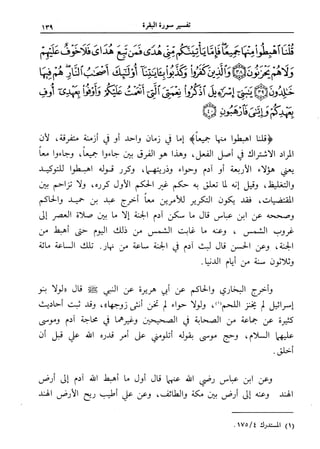 تفسير سورة البقرة ١٣٩
قُلْنَا اهْبِطُوا مِنْهَا جَمِيعًا فَإِمَّا يَأْتِيَنَّكُم مِّنِّي هُدًى فَمَن تَبِعَ هُدَايَ فَلَا خَوْفٌ عَلَيْهِمْ
وَلَا هُمْ يَحْزَنُونَ ﴿٣٨﴾ وَالَّذِينَ كَفَرُوا وَكَذَّبُوا بِآيَاتِنَا أُولَٰئِكَ أَصْحَابُ النَّارِ هُمْ فِيهَا
خَالِدُونَ ﴿٣٩﴾ يَا بَنِي إِسْرَائِيلَ اذْكُرُوا نِعْمَتِيَ الَّتِي أَنْعَمْتُ عَلَيْكُمْ وَأَوْفُوا بِعَهْدِي أُوفِ
بِعَهْدِكُمْ وَإِيَّايَ فَارْهَبُونِ ﴿٤٠﴾
﴿قلنا اهبطوا منها جميعاً﴾ إما في زمان واحد أو في أزمنة متفرقة، لأن
المراد الاشتراك في أصل الفعل، وهذا هو الفرق بين جاءوا جميعاً، وجاءوا معاً
يعني هؤلاء الأربعة أو آدم وحواء وذريتهما، وكرر قوله اهبطوا للتوكيد
والتغليظ، وقيل إنه لما تعلق به حكم غير الحكم الأول كرره، ولا تزاحم بين
المقتضيات، فقد يكون التكرير للأمرين معاً أخرج عبد بن حميد والحاكم
وصححه عن ابن عباس قال ما سكن آدم الجنة إلا ما بين صلاة العصر إلى
غروب الشمس، وعنه ما غابت الشمس من ذلك اليوم حتى أهبط من
الجنة، وعن الحسن قال لبث آدم في الجنة ساعة من نهار. تلك الساعة مائة
وثلاثون سنة من أيام الدنيا.
وأخرج البخاري والحاكم عن أبي هريرة عن النبي ﷺ قال «لولا بنو
إسرائيل لم يخنز اللحم(١)، ولولا حواء لم تخن أنثى زوجها»، وقد ثبت أحاديث
كثيرة عن جماعة من الصحابة في الصحيحين وغيرهما في محاجة آدم وموسى
عليهما السلام، وحج موسى بقوله أتلومني على أمر قدره الله علي قبل أن
أخلق.
وعن ابن عباس رضي الله عنهما قال أول ما أهبط الله آدم إلى أرض
الهند وعنه إلى أرض بين مكة والطائف، وعن علي أطيب ريح الأرض الهند
(١) المستدرك ٤/ ١٧٥.